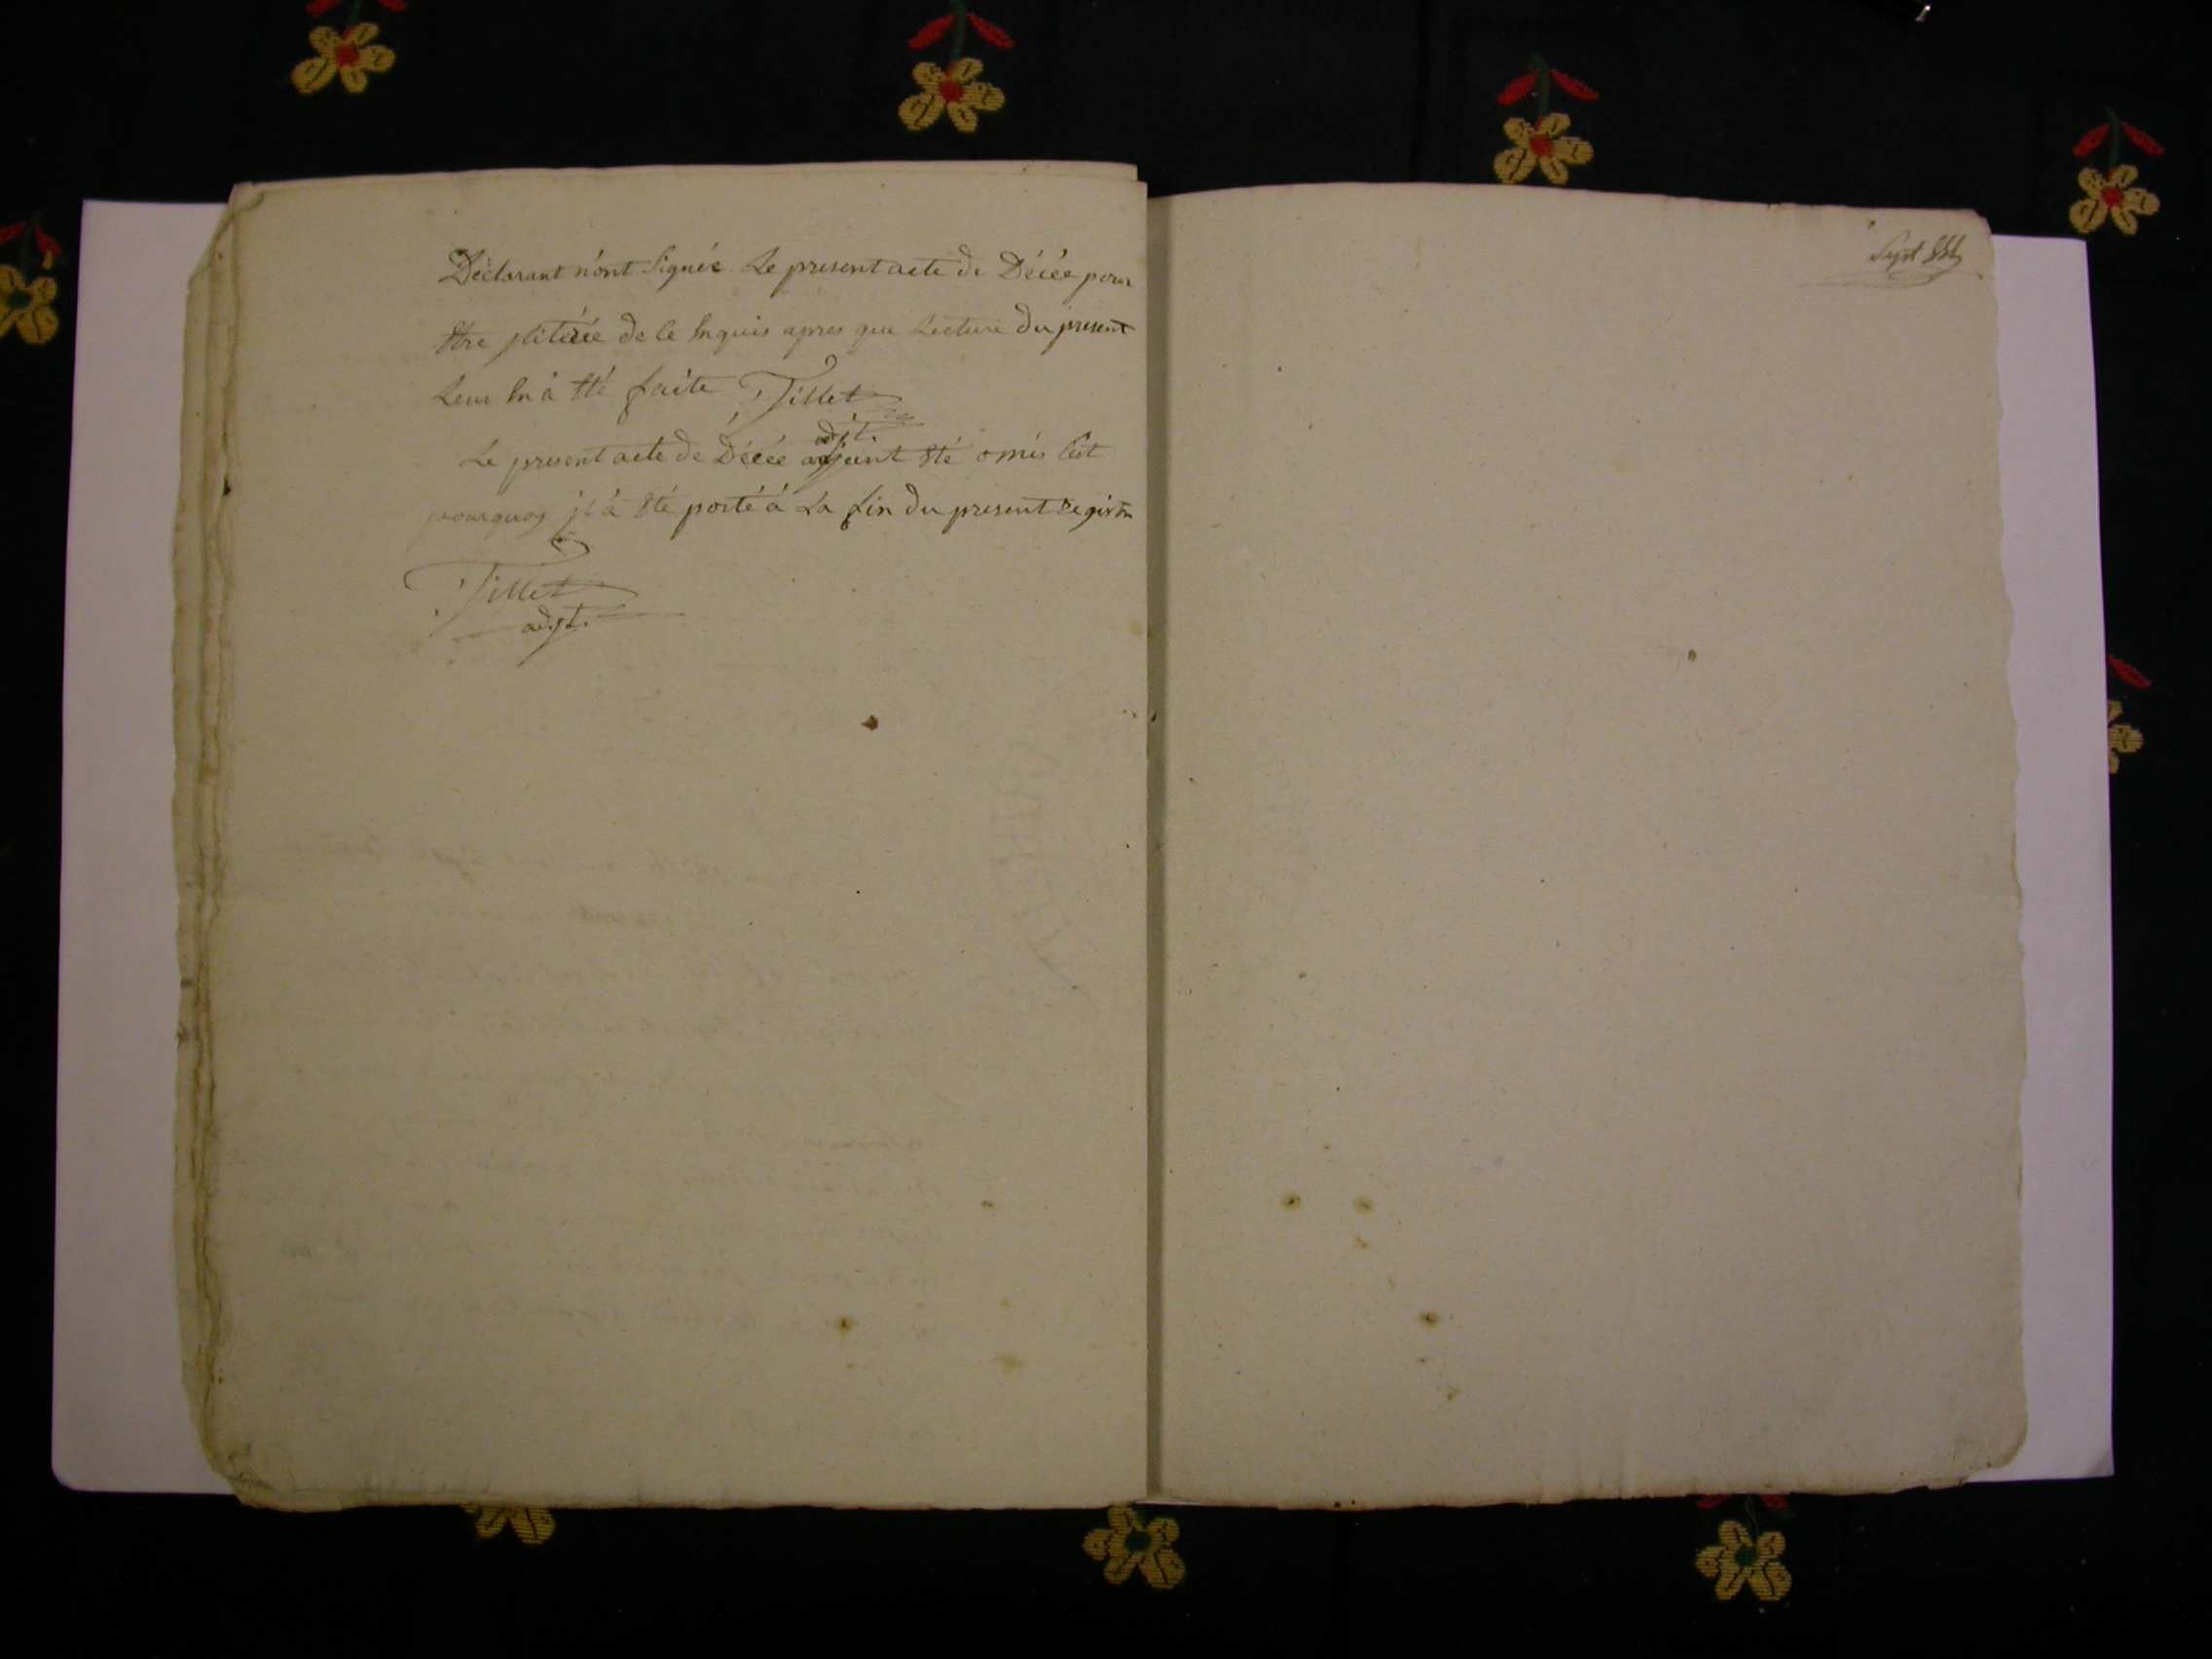 Déclarant n'ont Signée Le present acte de Décée pour
être de ce Enquis apres que Lecture du present
Leur En à été faite Tillet
adjt.
Le present acte de Décée ayant été omis C'est
pourquoy il à été porté à La fin du present registre
Tillet
adjt.
Sept